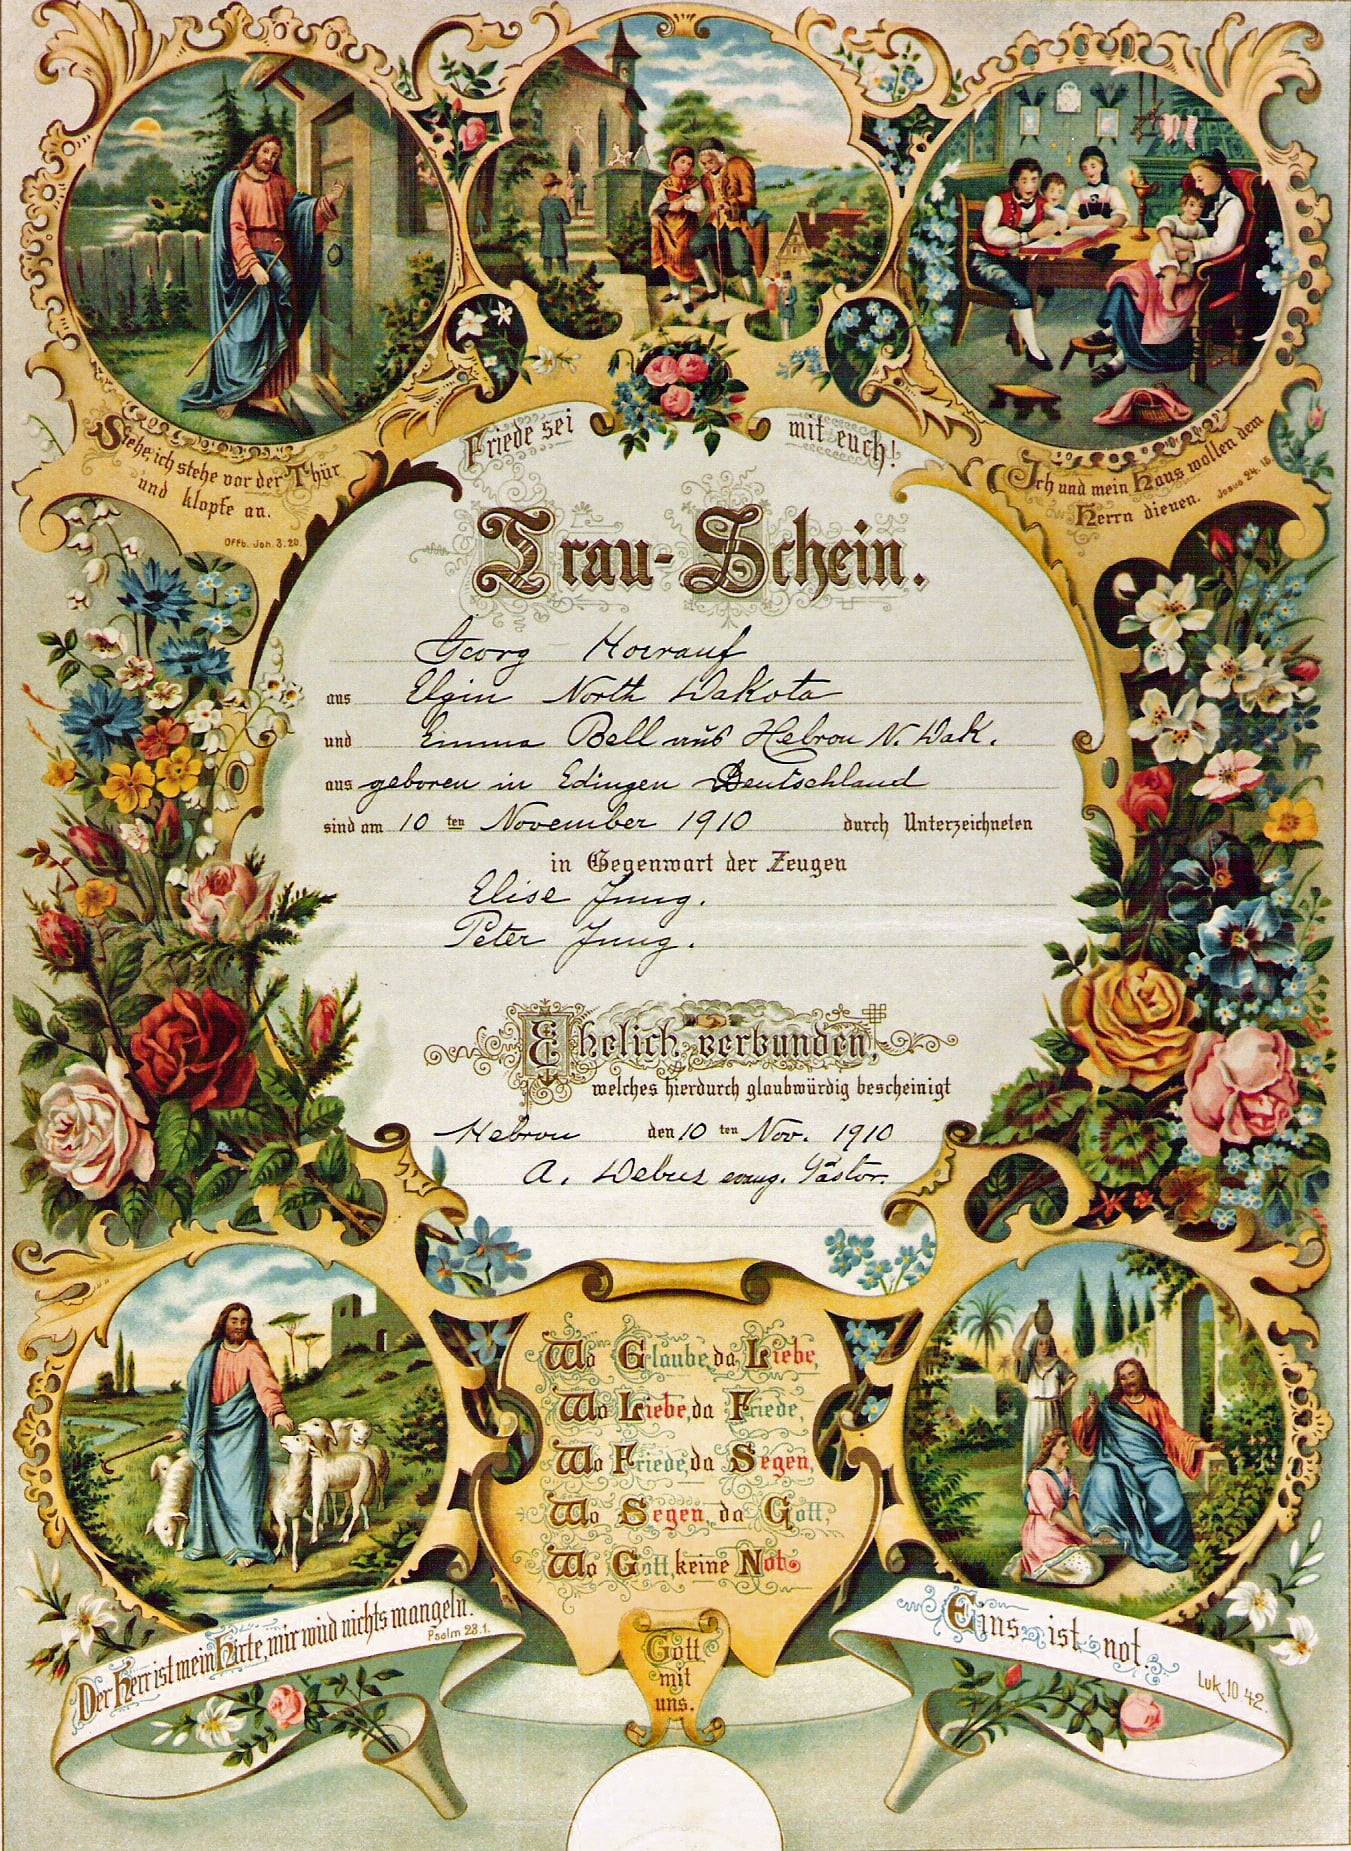 Friede sei mit euch!
Siehe, ich stehe vor der Thür
und klopfe an.
Offb. Joh. 3. 20.
Ich und mein Haus wollen dem
Herrn dienen. Josua 24. 15.
Trau-Schein.
Georg Hoerauf
aus Elgin North Dakota
und Emma Bell aus Hebron N. Dak.
aus geboren in Edingen Deutschland
sind am 10 ten November 1910 durch Unterzeichneten
in Gegenwart der Zeugen
Elise Jung.
Peter Jung.
Ehelich verbunden,
welches hierdurch glaubwürdig bescheinigt
Hebron den 10 ten Nov. 1910
A. Debus evang. Pastor.
Wo Glaube, da Liebe,
Wo Liebe, da Friede,
Wo Friede, da Segen,
Wo Segen, da Gott,
Wo Gott, keine Not.
Der Herr ist mein Hirte, mir wird nichts mangeln.
Psalm 23.1.
Eins ist not.
Luk. 10 42.
Gott
mit
uns.